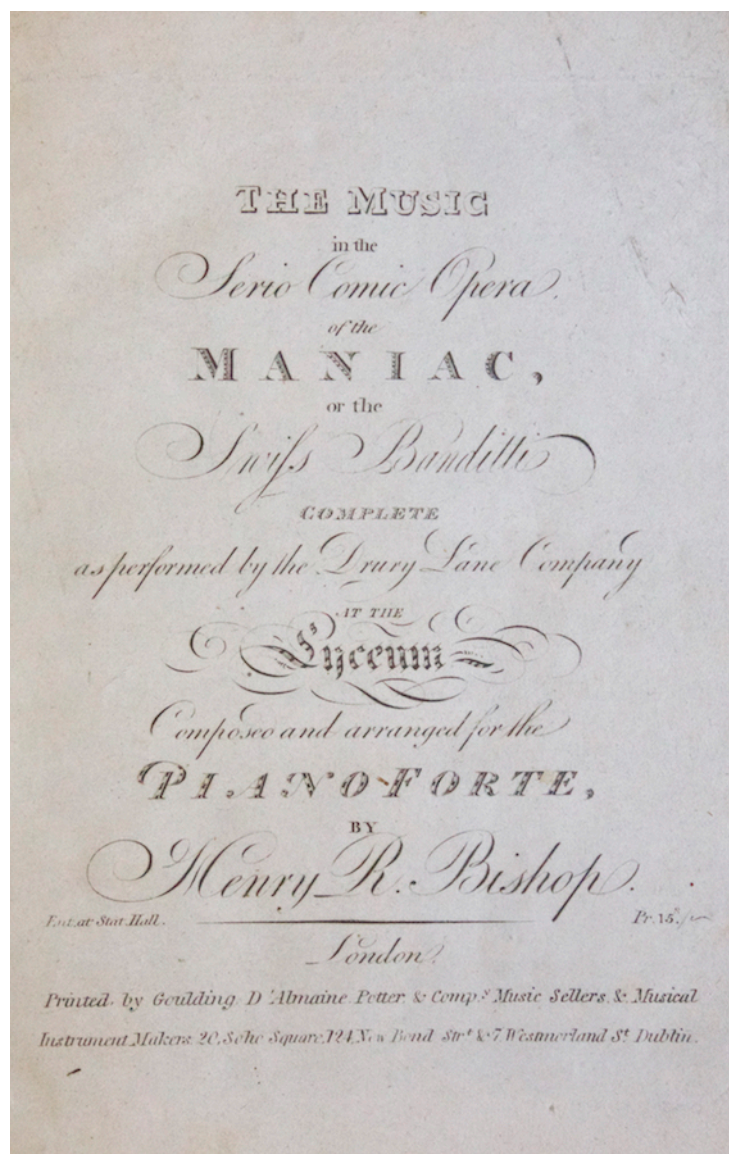 THE MUSIC
in the
Serio Comic Opera.
of the
MANIAC,
or the
Swiſs Banditti
COMPLETE
as performed by the Drury Lane Company
AT THE
Lyceum
Composed and arranged for the
PIANO FORTE,
BY
Henry R. Bishop.
Ent. at Stat. Hall. Pr. 15.
London.
Printed by Goulding D'Almaine Potter & Comp.y Music Sellers & Musical
Instrument Makers 20, Soho Square, 124, New Bond Strt & 7 Westmorland St Dublin.